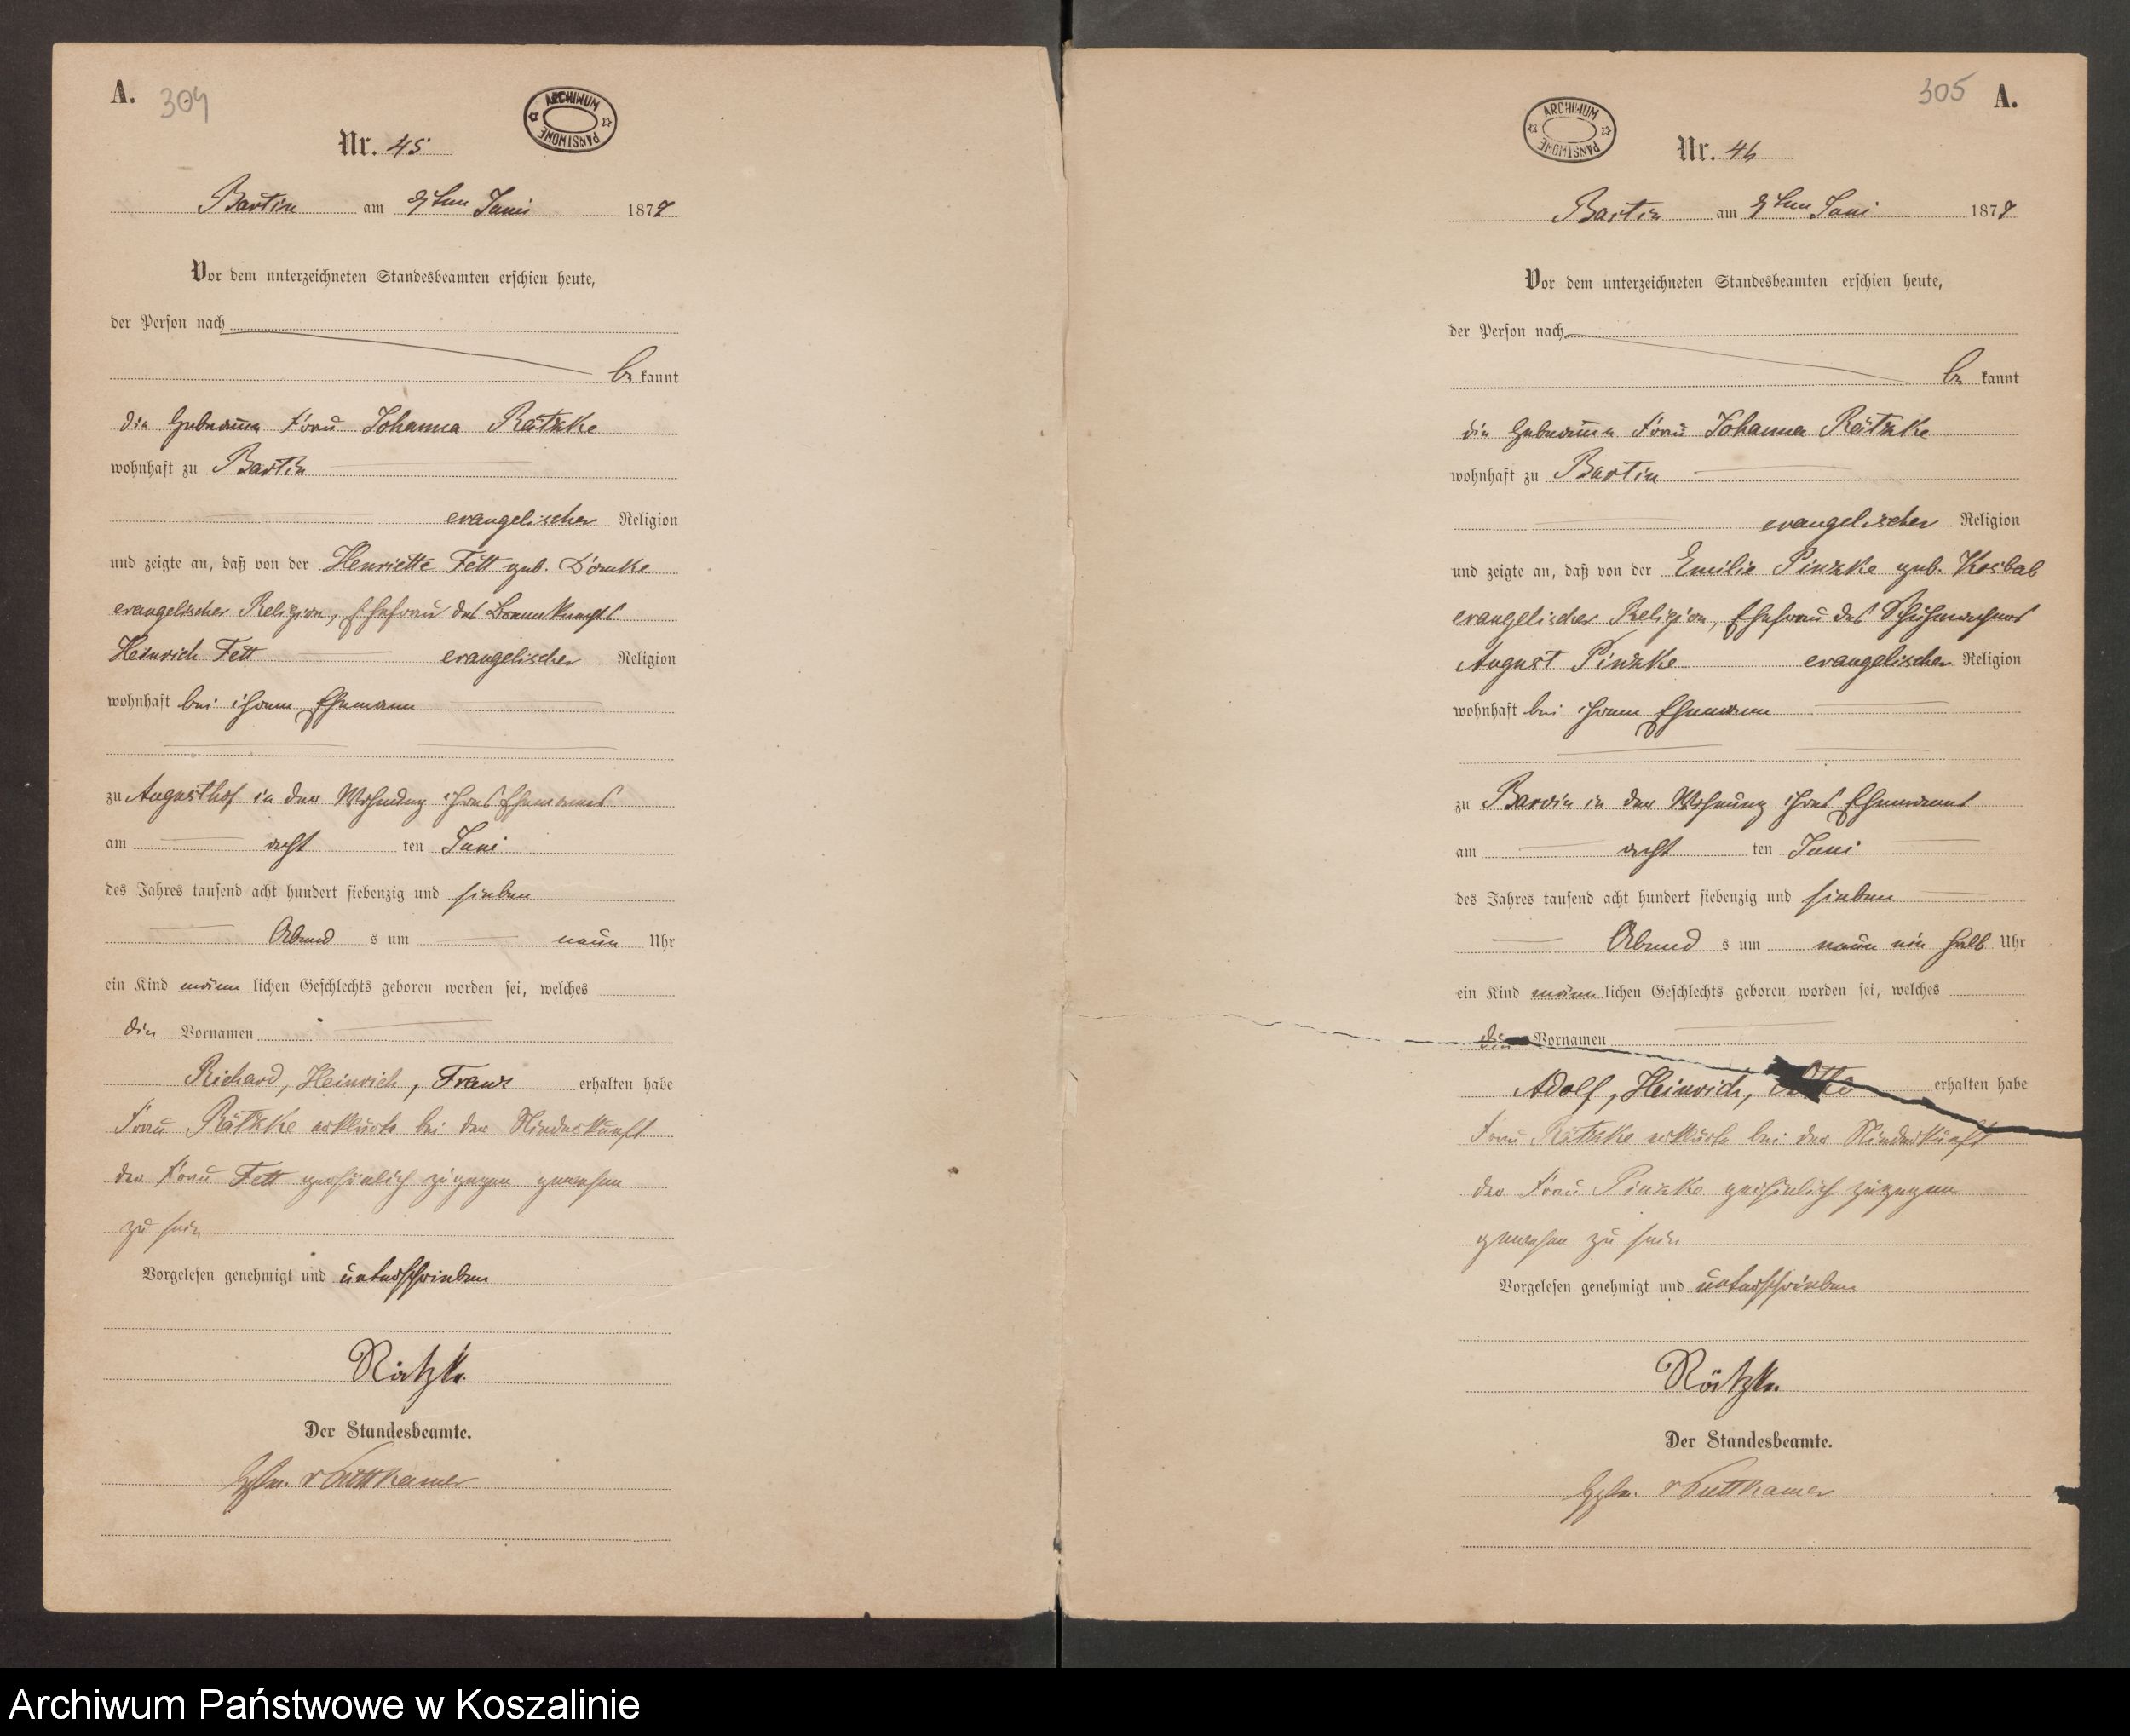 A. 304
ARCHIWUM PAŃSTWOWE
Nr. 45
Bartin am 9ten Juni 1877
Vor dem unterzeichneten Standesbeamten erschien heute,
der Person nach
be kannt
die Hebamme Frau Johanna Rätzke
wohnhaft zu Bartin
evangelischer Religion
und zeigte an, daß von der Henriette Fett geb.
evangelischer Religion, Ehefrau des
Heinrich Fett evangelischer Religion
wohnhaft bei ihrem Ehemann
zu Augusthof in der Wohnung ihres Ehemannes
am acht ten Juni
des Jahres tausend acht hundert siebenzig und sieben
Abend s um neun Uhr
ein Kind männ lichen Geschlechts geboren worden sei, welches
die Vornamen
Richard, Heinrich, Franz erhalten habe
Frau Rätzke erklärte bei der Niederkunft
der Frau Fett persönlich zugegen gewesen
zu sein
Vorgelesen genehmigt und unterschrieben
Rätzke
Der Standesbeamte.
v Puttkamer
305 A.
ARCHIWUM PAŃSTWOWE
Nr. 46
Bartin am 9ten Juni 1877
Vor dem unterzeichneten Standesbeamten erschien heute,
der Person nach
be kannt
die Hebamme Frau Johanna Rätzke
wohnhaft zu Bartin
evangelischer Religion
und zeigte an, daß von der Emilie Pinzke geb. Kosbab
evangelischer Religion, Ehefrau des Schuhmachers
August Pinzke evangelischer Religion
wohnhaft bei ihrem Ehemann
zu Barvin in der Wohnung ihres Ehemannes
am acht ten Juni
des Jahres tausend acht hundert siebenzig und sieben
Abend s um neun ein halb Uhr
ein Kind männ lichen Geschlechts geboren worden sei, welches
die Vornamen
Adolf, Heinrich, Otto erhalten habe
Frau Rätzke erklärte bei der Niederkunft
der Frau Pinzke persönlich zugegen
gewesen zu sein.
Vorgelesen genehmigt und unterschrieben
Rätzke.
Der Standesbeamte.
v Puttkamer
Archiwum Państwowe w Koszalinie